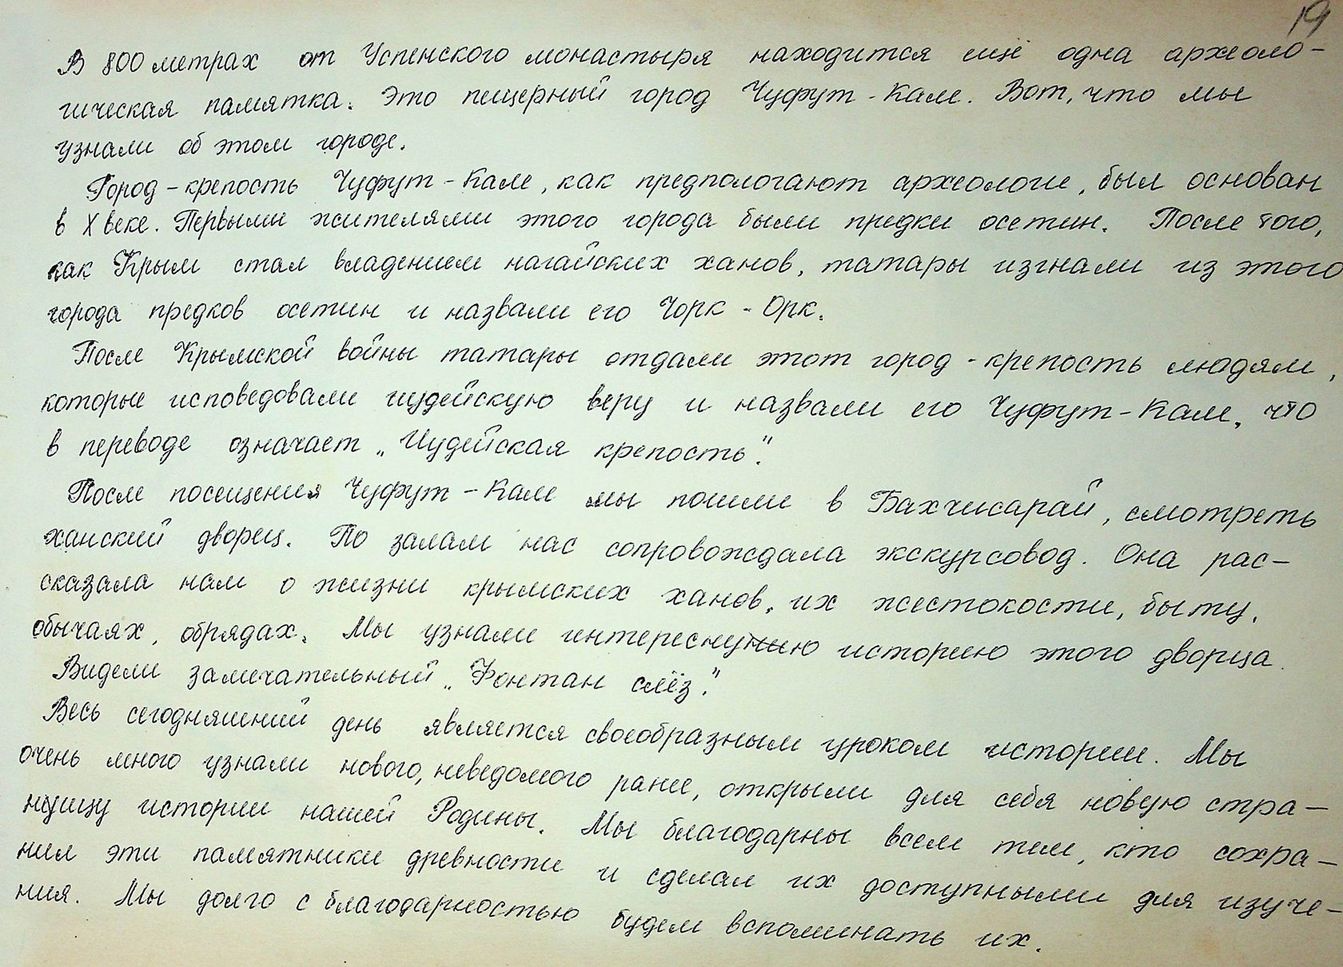 19
В 800 метрах от Успенского монастыря находится ещё одна археоло-
гическая памятка. Это пещерный город Чуфут-Кале. Вот, что мы
узнали об этом городе.
Город-крепость Чуфут-Кале, как предпологают археологи, был основан
в X веке. Первыми жителями этого города были предки осетин. После того,
как Крым стал владением нагайских ханов, татары изгнали из этого
города предков осетин и назвали его Чорк-Орк.
После Крымской войны татары отдали этот город-крепость людям,
которые исповедовали иудейскую веру и назвали его Чуфут-Кале, что
в переводе означает „Иудейская крепость".
После посещения Чуфут-Кале мы пошли в Бахчисарай, смотреть
ханский дворец. По залам нас сопровождала экскурсовод. Она рас-
сказала нам о жизни крымских ханов, их жестокости, быту,
обычаях, обрядах. Мы узнали интересную историю этого дворца.
Видели замечательный „Фонтан слёз".
Весь сегодняшний день является своеобразным уроком истории. Мы
очень много узнали нового, неведомого ранее, открыли для себя новую стра-
ницу истории нашей Родины. Мы благодарны всем тем, кто сохра-
нил эти памятники древности и сделал их доступными для изуче-
ния. Мы долго с благодарностью будем вспоминать их.